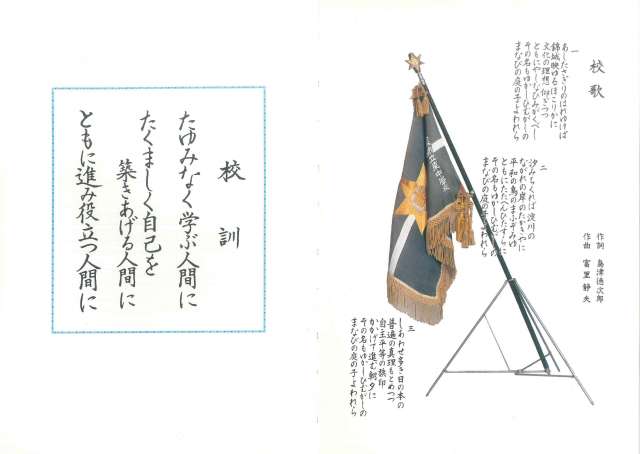 校歌
一
あしたさぎりのはれゆけば
錦城映ゆるほこりかに
文化の理想仰ぎつつ
ともにやしなひみがくべし
その名もゆかしひむがしの
まなびの庭の子よわれら
二
汐みちくれば淀川の
ながれの岸のたかきやに
平和の鳥のまふぞみゆ
ともにたたへんひたすらに
その名もゆかしひむがしの
まなびの庭の子よわれら
作詞 島津徳次郎
作曲 富里静夫
三
しあわせ多き日の本の
普遍の真理もとめつつ
自主平等の旗印
かかげて進む朝夕に
その名もゆかしひむがしの
まなびの庭の子よわれら
校訓
たゆみなく学ぶ人間に
たくましく自己を
築きあげる人間に
ともに進み役立つ人間に